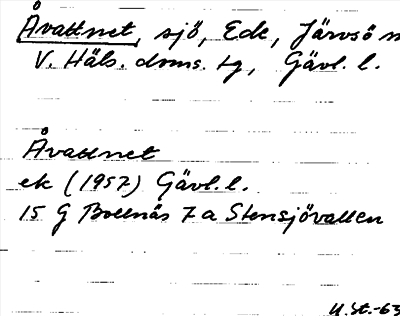 Åvattnet, sjö, Ede, Järvsö
V. Häls. doms. tg, Gävl. l.
Åvattnet
ek (1957) Gävl. l.
15 G Bollnäs 7 a Stensjövallen
U.St.-63